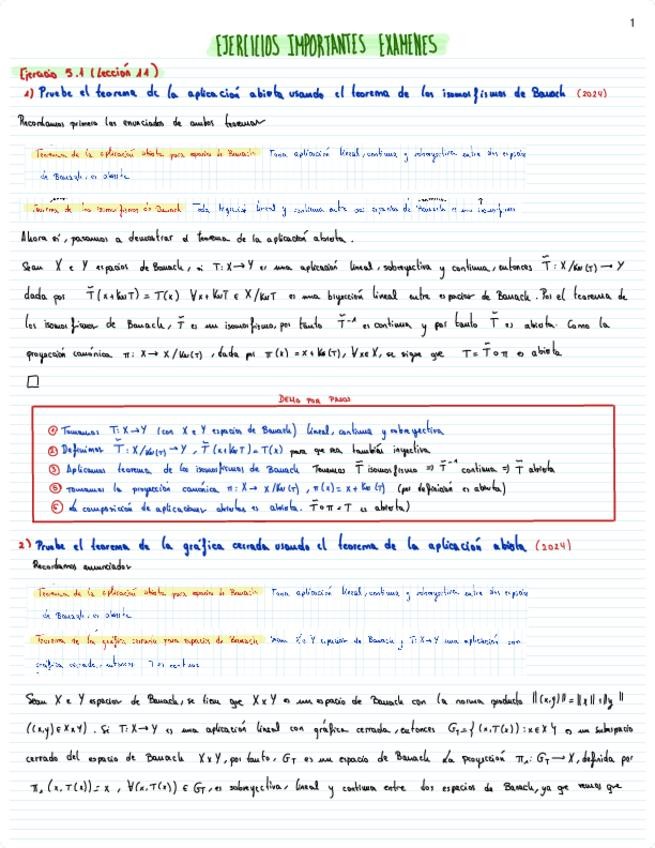 1
EJERCICIOS IMPORTANTES EXAMENES
Ejercicio 5.1 (Lección 11)
1) Pruebe el teorema de la aplicación abierta usando el teorema de los isomorfismos de Banach (2024)
Recordamos primero los enunciados de ambos teoremas
Teorema de la aplicación abierta para espacios de Banach Toda aplicación lineal, continua y sobreyectiva entre dos espacios
de Banach, es abierta
Teorema de los isomorfismos de Banach Toda biyección lineal y continua entre dos espacios de Banach es un isomorfismo
Ahora sí, pasamos a demostrar el teorema de la aplicación abierta.
Sean X e Y espacios de Banach, si T: X→Y es una aplicación lineal, sobreyectiva y continua, entonces T̃: X/Ker(T) → Y
dada por T̃(x+KerT) = T(x) ∀x+KerT ∈ X/KerT es una biyección lineal entre espacios de Banach. Por el teorema de
los isomorfismos de Banach, T̃ es un isomorfismo, por tanto T̃⁻¹ es continua y por tanto T̃ es abierta. Como la
proyección canónica π: X→ X/Ker(T), dada por π(x) = x+Ker(T), ∀x∈X, se sigue que T = T̃∘π es abierta
□
DEMO POR PASOS
① Tomamos T: X→Y (con X e Y espacios de Banach) lineal, continua y sobreyectiva
② Definimos T̃: X/Ker(T) → Y, T̃(x+KerT) = T(x) para que sea también inyectiva
③ Aplicamos teorema de los isomorfismos de Banach Tenemos T̃ isomorfismo ⇒ T̃⁻¹ continua ⇒ T̃ abierta
⑤ Tomamos la proyección canónica π: X → X/Ker(T), π(x) = x+Ker(T) (por definición es abierta)
La composición de aplicaciones abiertas es abierta. T̃∘π = T es abierta)
2) Pruebe el teorema de la gráfica cerrada usando el teorema de la aplicación abierta (2024)
Recordamos enunciados
Teorema de la aplicación abierta para espacios de Banach Toda aplicación lineal, continua y sobreyectiva entre dos espacios
de Banach, es abierta
Teorema de la gráfica cerrada para espacios de Banach Sean X e Y espacios de Banach y T: X→Y una aplicación con
gráfica cerrada, entonces T es continua
Sean X e Y espacios de Banach, se tiene que X×Y es un espacio de Banach con la norma producto ||(x,y)|| = ||x|| ||y||
((x,y) ∈ X×Y). Si T: X→Y es una aplicación lineal con gráfica cerrada, entonces G_T = {(x, T(x)) : x∈X} es un subespacio
cerrado del espacio de Banach X×Y, por tanto, G_T es un espacio de Banach La proyección π₁: G_T → X, definida por
π₁(x, T(x)) = x, ∀(x, T(x)) ∈ G_T, es sobreyectiva, lineal y continua entre dos espacios de Banach, ya que vemos que